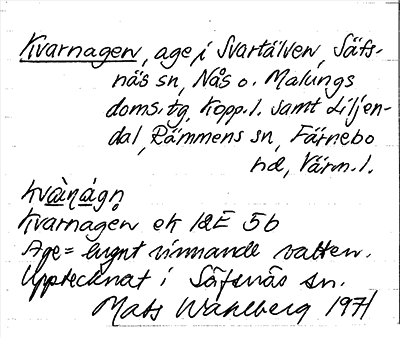 Kvarnagen, age i Svartälven, Säfs-
näs sn, Nås o. Malungs
doms. tg, Kopp. l. samt Liljen-
dal, Rämmens sn, Färnebo
hd, Värm. l.
Kvarnagen ek 12E 5b
Age = lugnt rinnande vatten.
Upptecknat i Säfsnäs sn.
Mats Wahlberg 1971